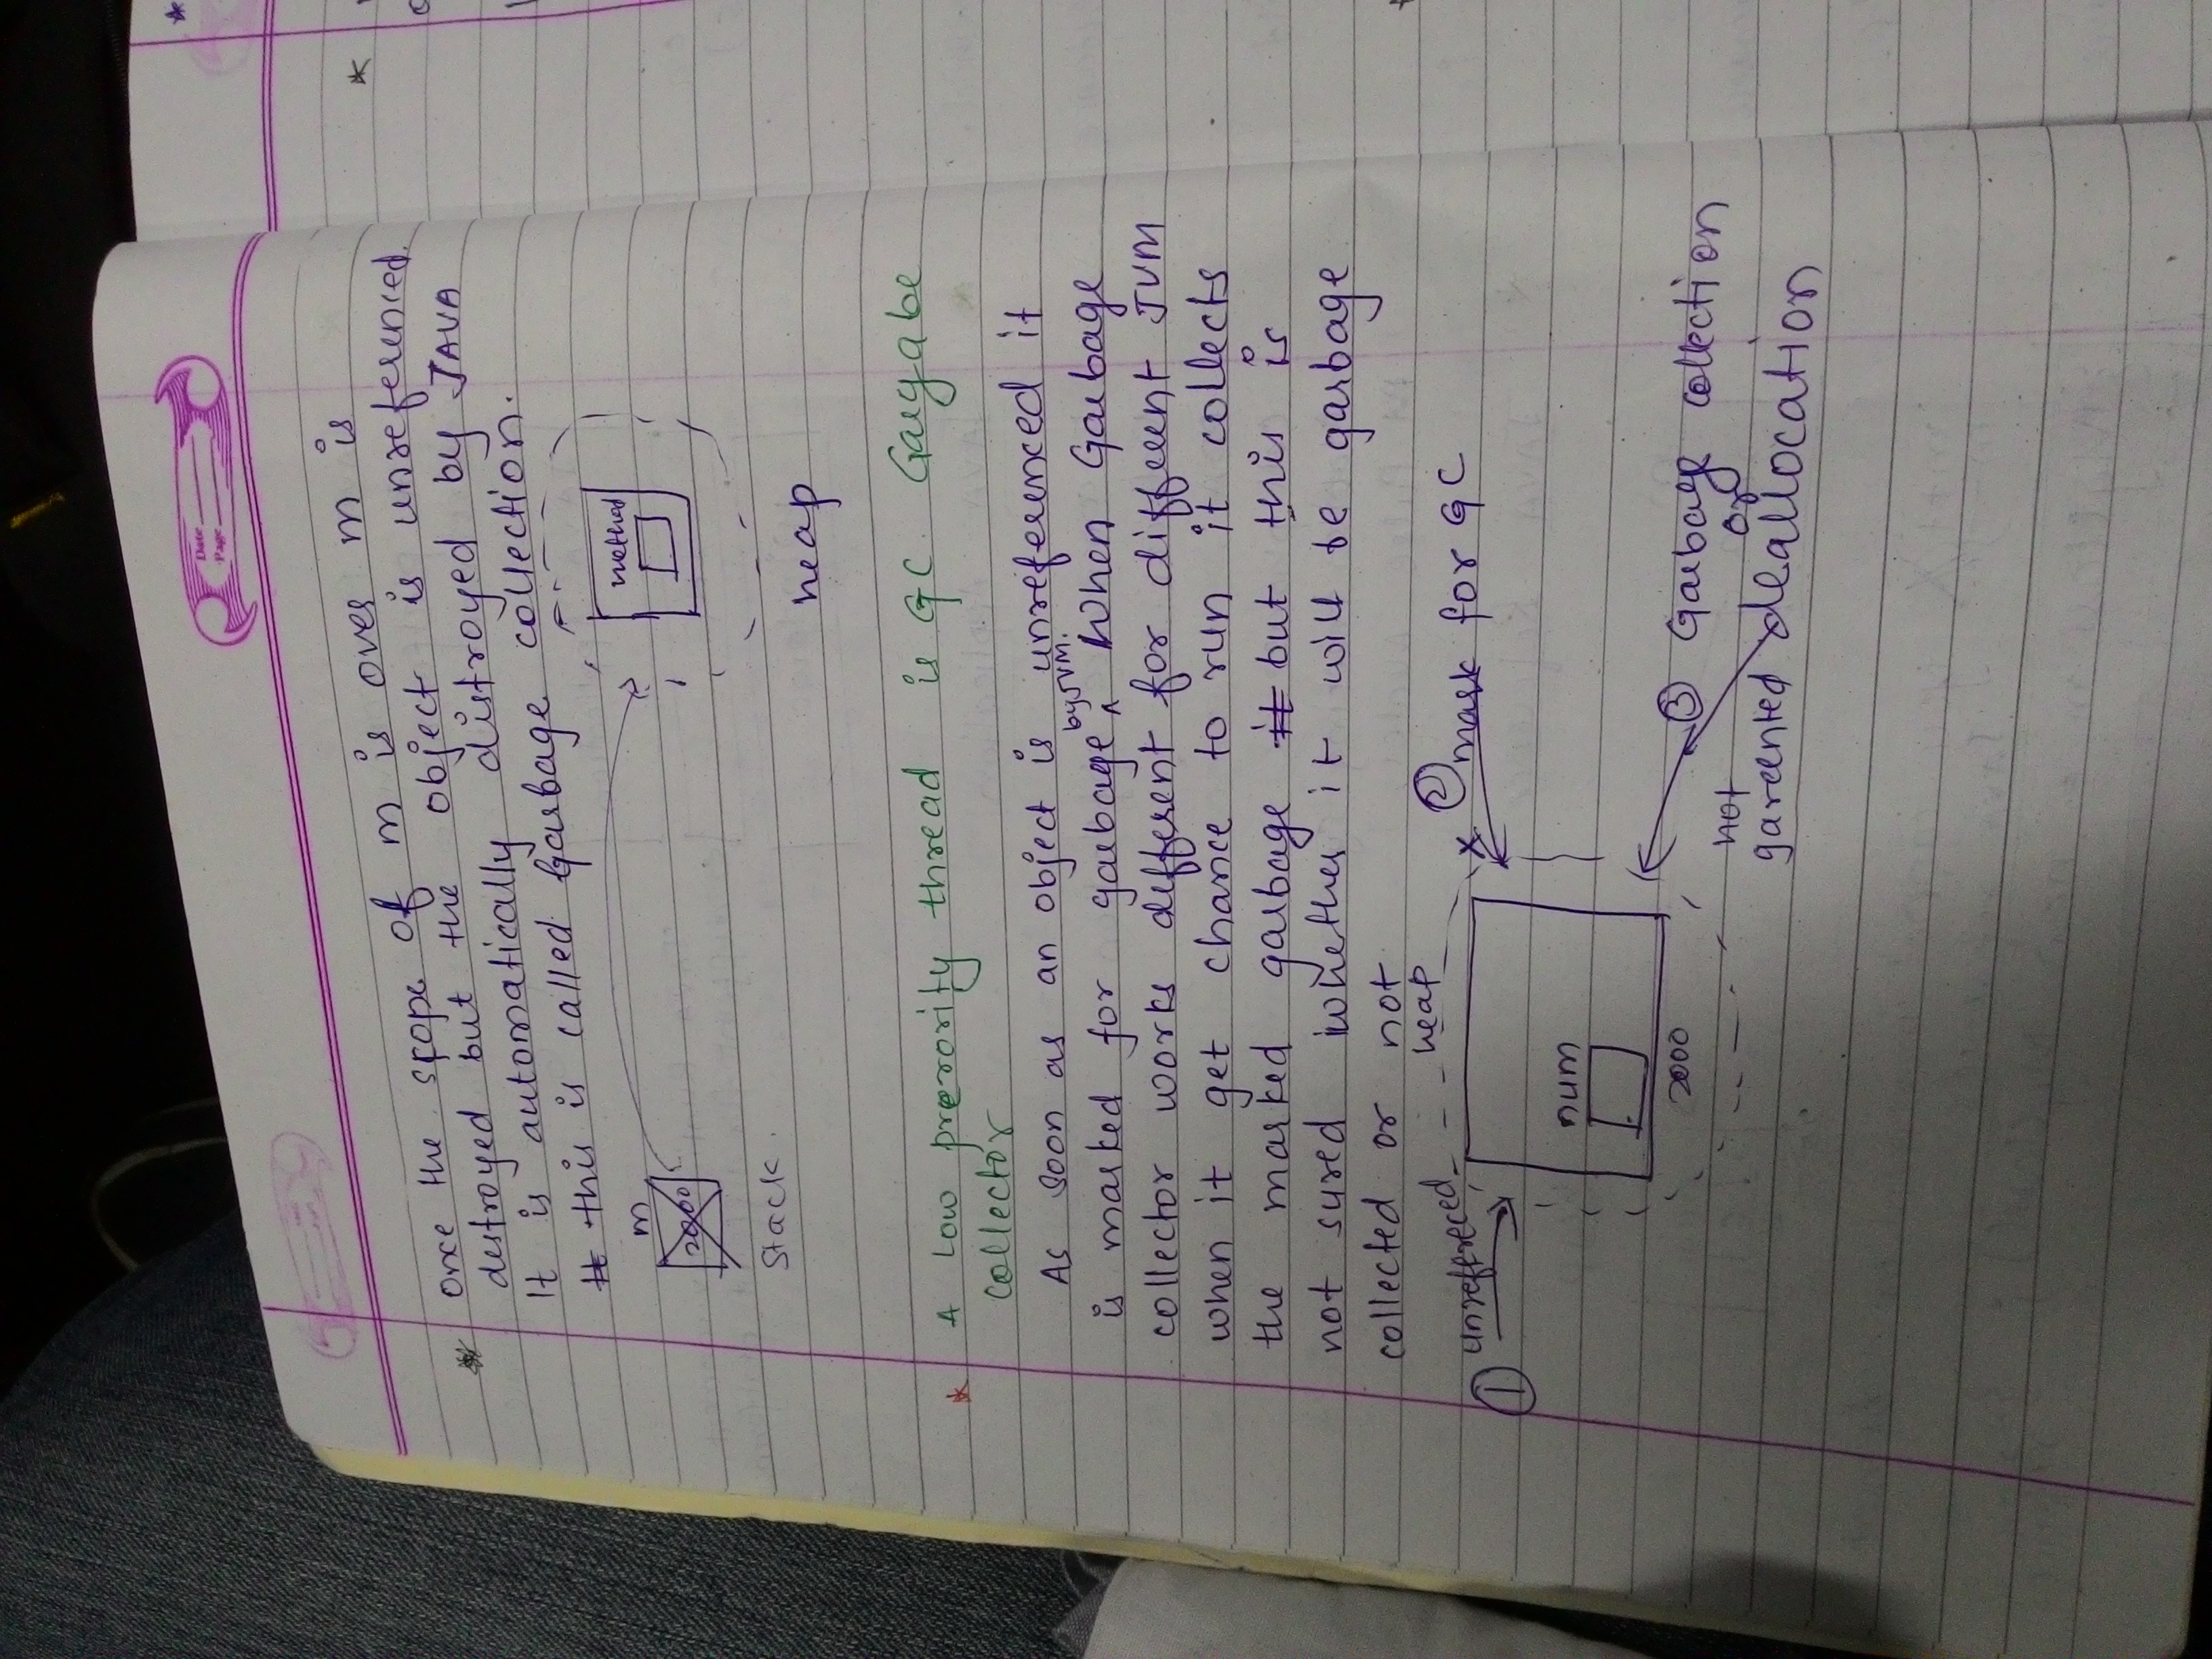 Date
Page
once the scope of m is over m is
destroyed but the object is unreferenced.
It is automatically distroyed by JAVA
It this is called Garbage collection.
m
2000
method
Stack.
heap
A Low prerority thread is GC. Gargabe
collector
As soon as an object is unreferenced it
by JVM.
is marked for garbage ^ When Garbage
collector works different for different JVM
when it get chance to run it collects
the marked garbage it but this is
not sured whether it will be garbage
collected or not
heap
① unreffreced
② mark for GC
num
2000
③ Garbage collection
not or
gareented deallocation